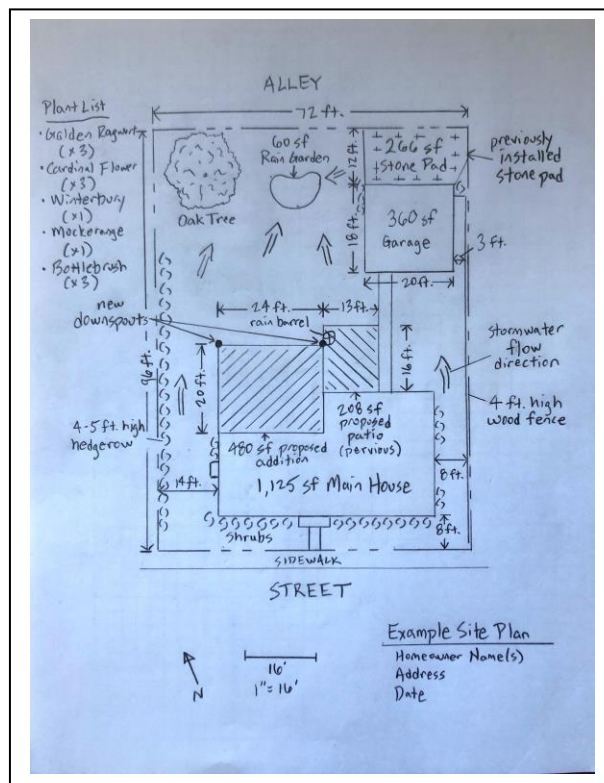 ALLEY
72 ft.
Plant List
• Golden Ragwort
(x3)
• Cardinal Flower
(x3)
• Winterbury
(x1)
• Mockerange
(x1)
• Bottlebrush
(x3)
60 sf
Rain Garden
Oak Tree
12 ft.
266 sf
Stone Pad
previously
installed
stone pad
18 ft.
360 sf
Garage
3 ft.
20 ft.
24 ft.
13 ft.
new
downspouts
rain barrel
96 ft.
20 ft.
16 ft.
stormwater
flow
direction
4 ft. high
wood fence
4-5 ft. high
hedgerow
480 sf proposed
addition
208 sf
proposed
patio
(pervious)
14 ft.
1,125 sf Main House
8 ft.
8 ft.
Shrubs
SIDEWALK
STREET
N
16'
1" = 16'
Example Site Plan
Homeowner Name(s)
Address
Date